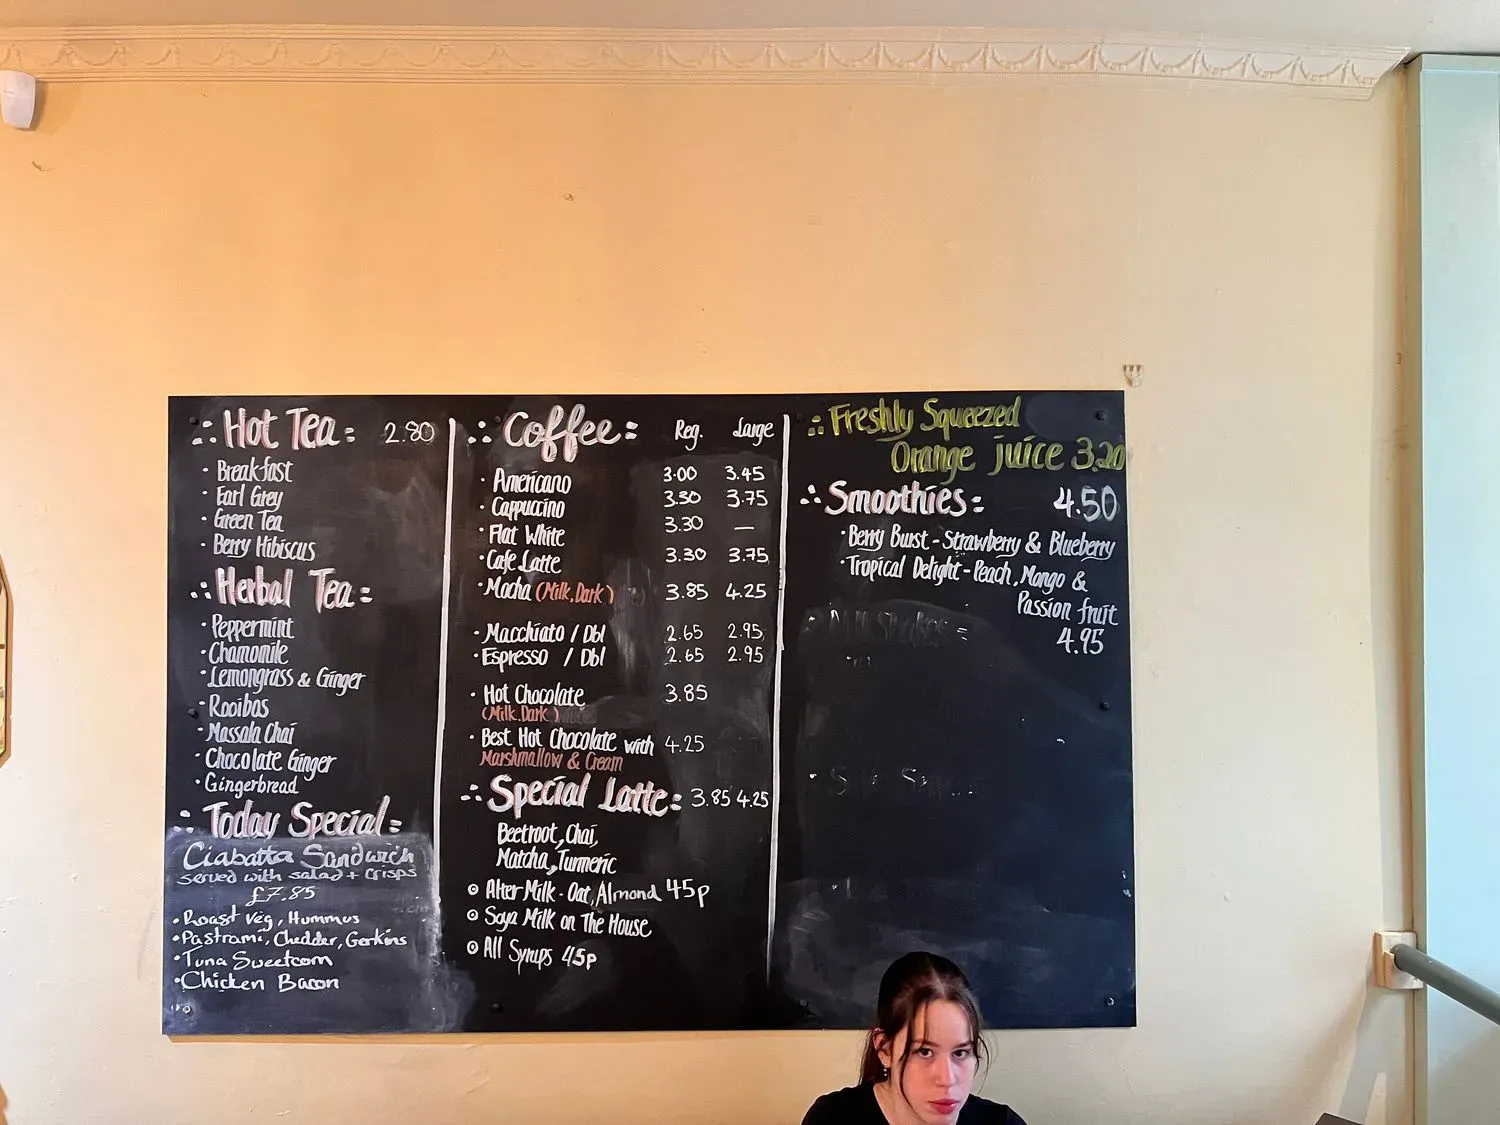 Hot Tea: 2.80
· Breakfast
· Earl Grey
· Green Tea
· Berry Hibiscus
Herbal Tea:
· Peppermint
· Chamomile
· Lemongrass & Ginger
· Rooibos
· Massala Chai
· Chocolate Ginger
· Gingerbread
Today Special:
Ciabatta Sandwich
served with salad + crisps
£7.85
· Roast Veg, Hummus
· Pastrami, Chedder, Gerkins
· Tuna Sweetcorn
· Chicken Bacon
Coffee: Reg. Large
· Americano 3.00 3.45
· Cappuccino 3.30 3.75
· Flat White 3.30 —
· Cafe Latte 3.30 3.75
· Mocha (Milk, Dark) 3.85 4.25
· Macchiato / Dbl 2.65 2.95
· Espresso / Dbl 2.65 2.95
· Hot Chocolate 3.85
(Milk, Dark)
· Best Hot Chocolate with 4.25
Marshmallow & Cream
Special Latte: 3.85 4.25
Beetroot, Chai,
Matcha, Turmeric
Alter Milk - Oat, Almond 45p
Soya Milk on The House
All Syrups 45p
Freshly Squeezed
Orange juice 3.20
Smoothies: 4.50
· Berry Burst - Strawberry & Blueberry
· Tropical Delight - Peach, Mango &
Passion fruit
4.95